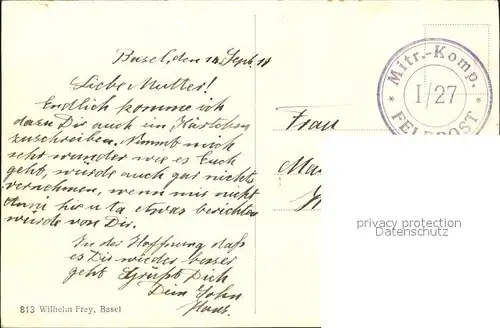 Basel, den 14. Sept 18
Liebe Mutter!
Endlich komme ich
dazu Dir auch ein Kärtchen
zuschreiben. Nimmt mich
sehr wunder wie es Euch
geht, würde auch gar nichts
vernehmen, wenn mir nicht
Anni hie u ta etwas berichten
würde von Dir.
In der Hoffnung daß
es Dir wieder besser
geht Grüßt Dich
Dein Sohn
Hans.
813 Wilhelm Frey, Basel
Mitr.-Komp.
I/27
* FELDPOST *
Frau
privacy protection
Datenschutz